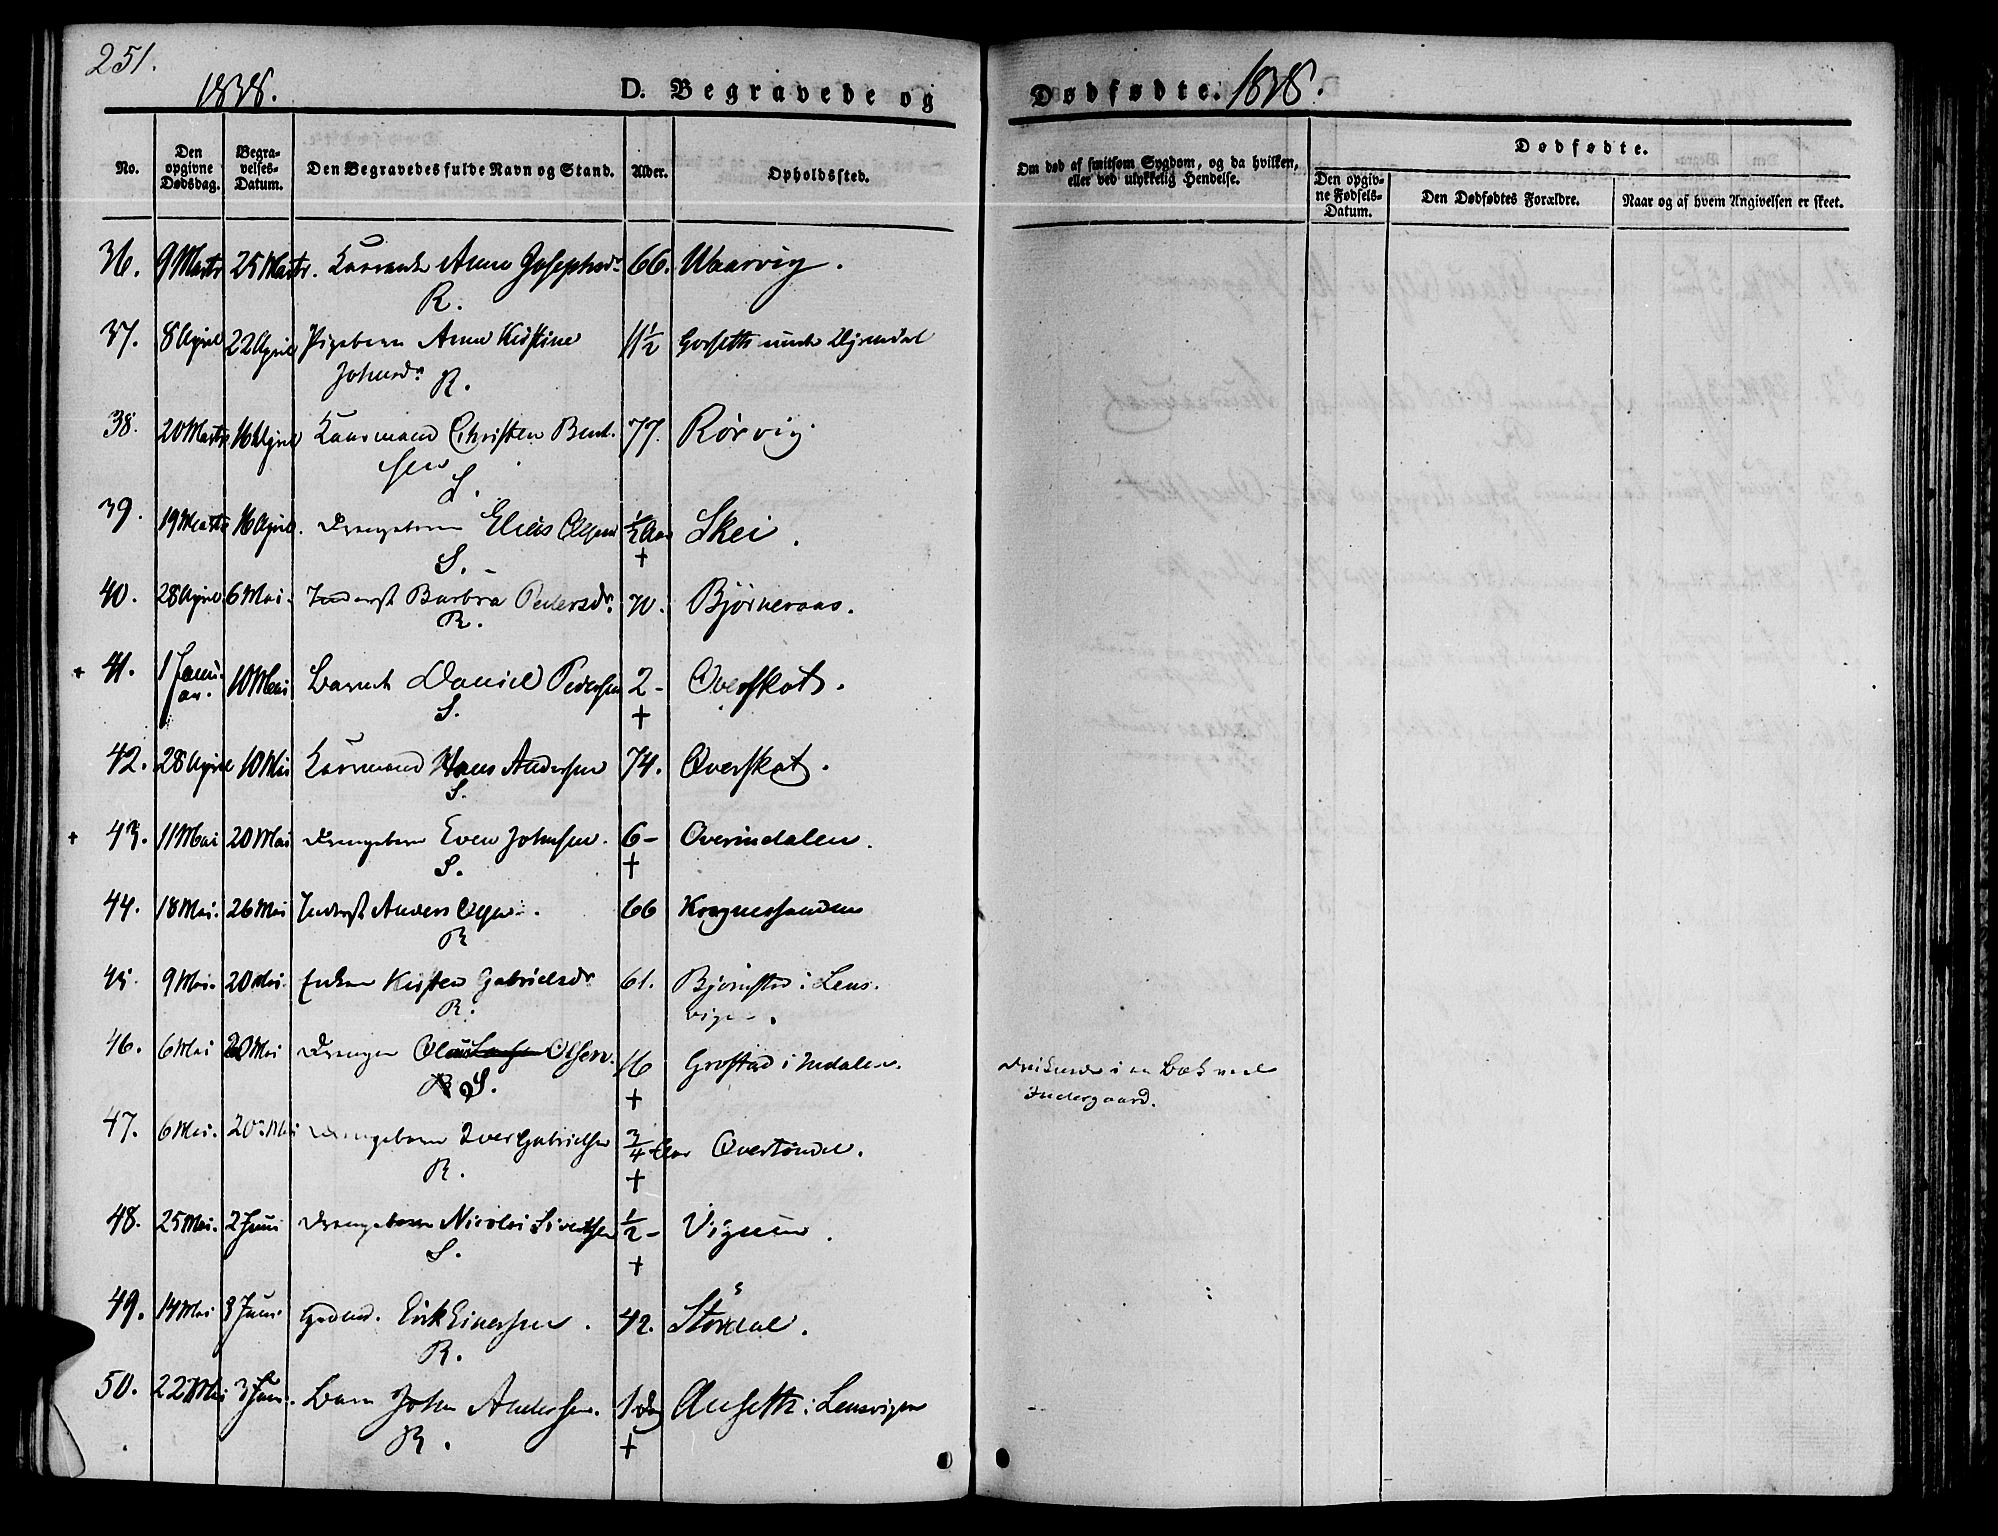 251.
1838.
D. Begravede og
Dødfødte. 1838.
No.
Den opgivne Dødsdag.
Begravelses-Datum.
Den Begravedes fulde Navn og Stand.
Alder.
Opholdssted.
Om død af smitsom Sygdom, og da hvilken, eller ved ulykkelig Hendelse.
Dødfødte.
Den opgivne Fødsels-Datum.
Den Dødfødtes Forældre.
Naar og af hvem Angivelsen er skeet.
36. 9 Marts 25 Marts. Anne Josephsdr 66. Waarvig.
R.
37. 8 April 22 April Pigebarn Anne Kirstine 11½ Gorseth under
Johnsdr R.
38. 20 Marts 16 April Kaarmand Christen Bent- 77. Rørvig.
sen
S.
39. 19 Marts 16 April. Drengebarn Elias Olsen ½ Aar Skei.
S. +
40. 28 April 6 Mai. Inderst Barbra Pedersdr. 70. Bjørneraas.
R.
+ 41. 1 Janu- 10 Mai Barnet Daniel Pedersen 2 - Overskot.
ar. S. +
42. 28 April 10 Mai Kaarmand Hans Andersen 74. Overskot.
S.
+ 43. 11 Mai 20 Mai Drengebarn Even Johnsen. 6 - Overindalen.
S. +
44. 18 Mai. 26 Mai Inderst Anders Olsen. 66 Kragnessanden
R
45. 9 Mai. 20 Mai. Enken Kirsten Gabrielsdr 61. Bjørnstad i Lens-
R. vigen.
46. 6 Mai 20 Mai Drengen Ole Olsen. 16 Grøstad i Indalen. Druknede i en Bæk ved
R S. + Indergaard.
47. 6 Mai. 20 Mai Drengebarn Iver Gabrielsen ¾ Aar Overtøndel.
R. +
48. 25 Mai. 2 Juni Drengebarn Nicolai Sivertsen ½ - Vignum.
S. +
49. 14 Mai 3 Juni Grdmd. Erik Einersen. 42. Størdal.
R.
50. 22 Mai 3 Juni. Barn John Andersen. 1 Dag Auseth i Lensvigen
R. +